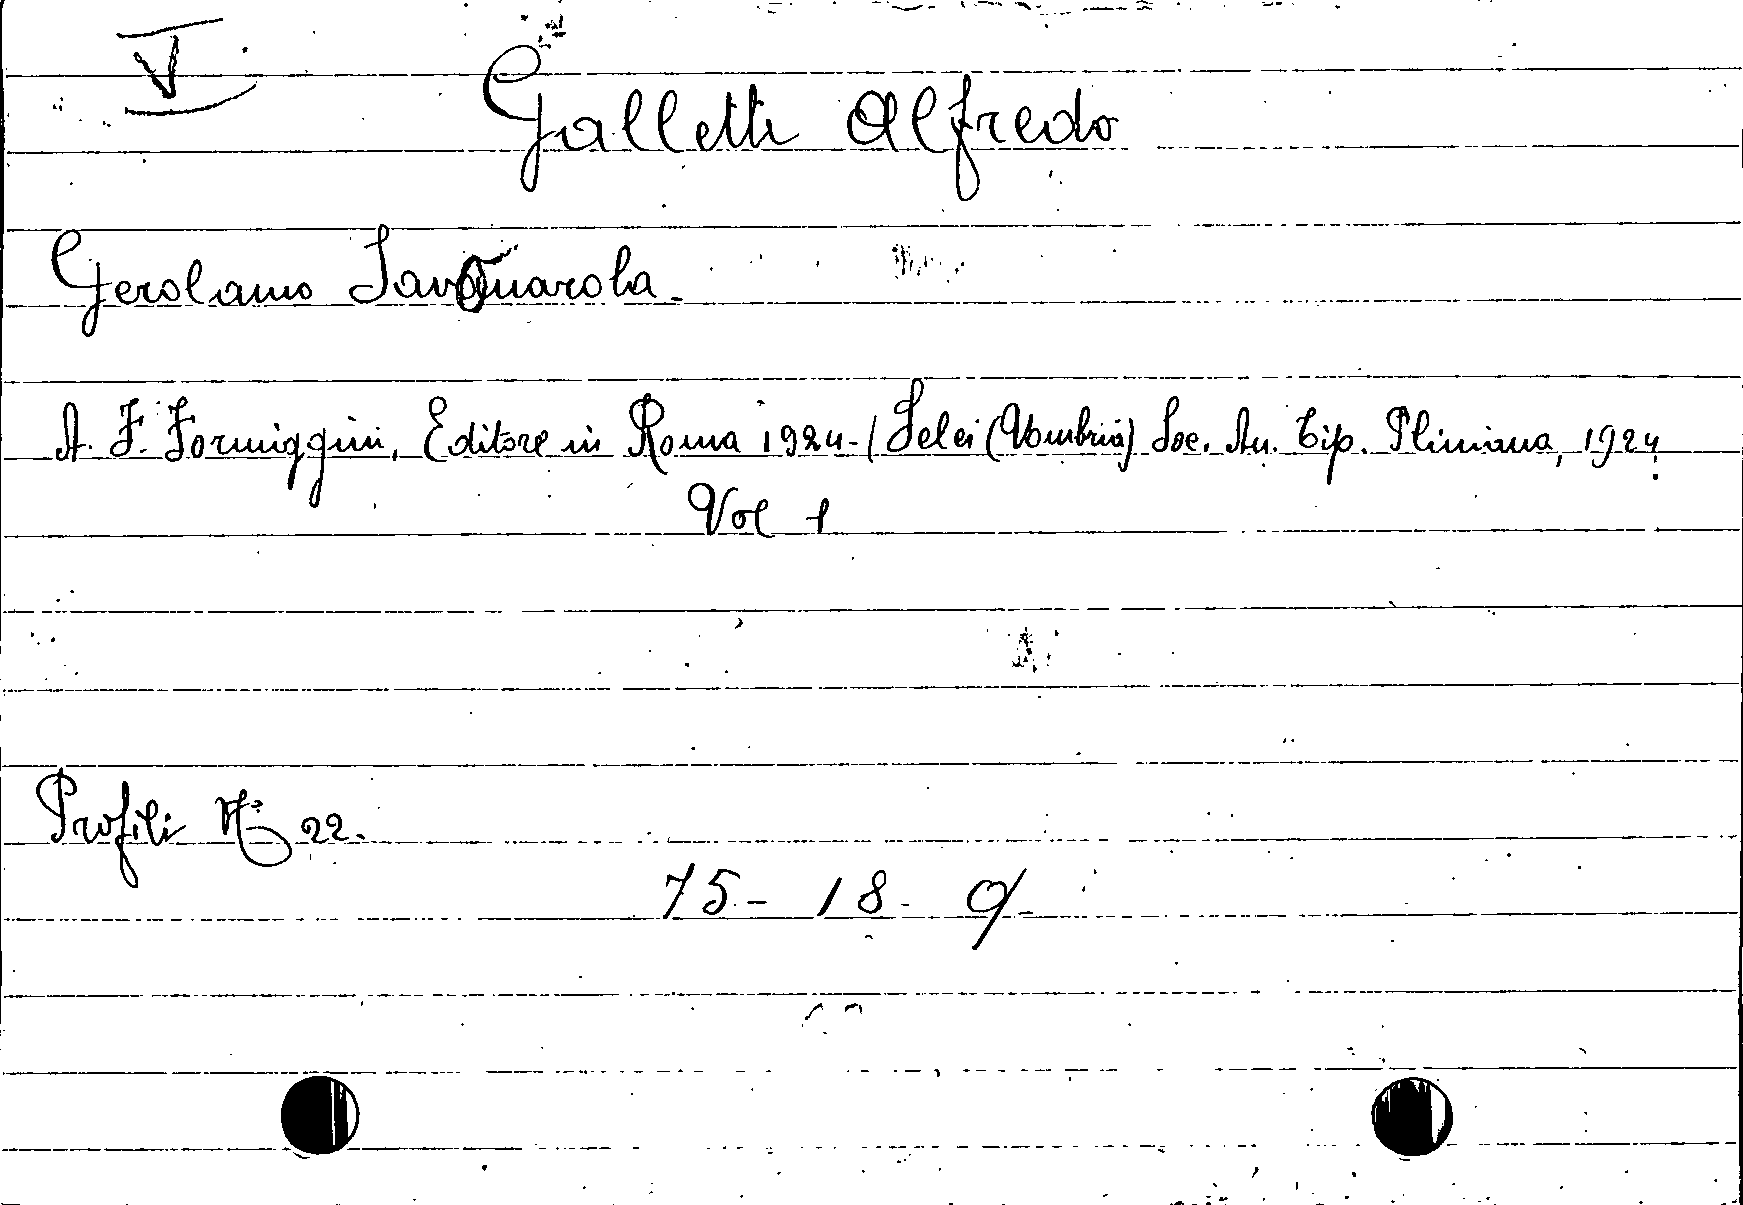 V
Galletti Alfredo
Gerolamo Savonarola.
A. F. Formiggini, Editore in Roma 1924-(Selci (Umbria) Soc. An. Tip. Pliniana, 1924.
Vol 1
Profili N° 22.
75- 18- 9